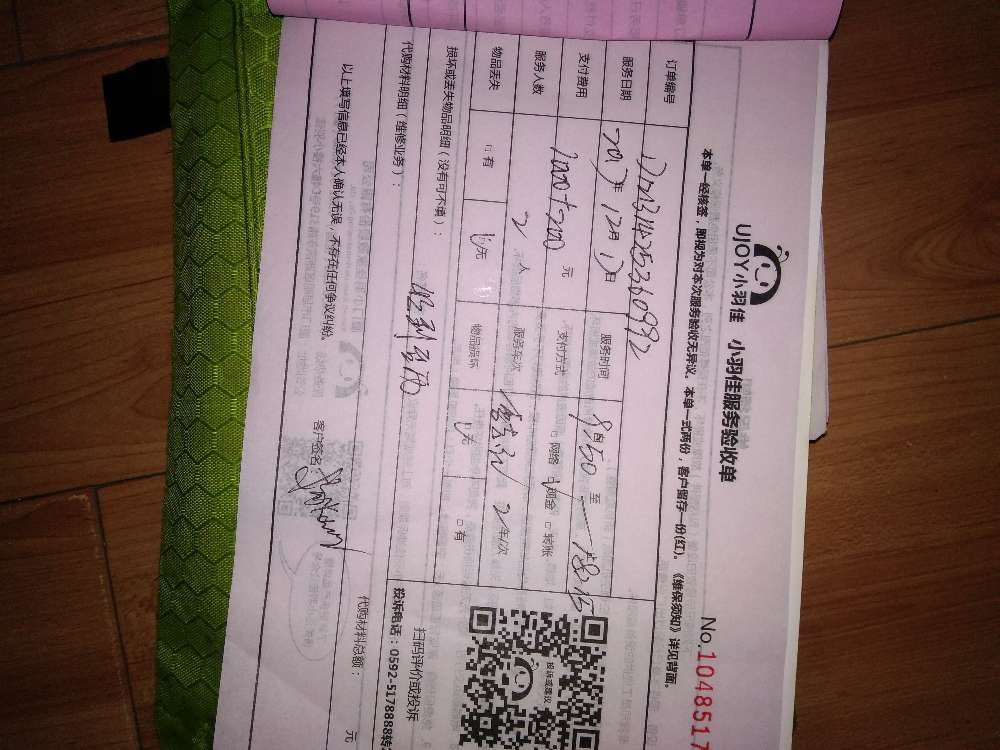 UJOY小羽佳 小羽佳服务验收单
No.1048517
本单一经核签，即视为对本次服务验收无异议，本单一式两份，客户留存一份(红)。《维保须知》详见背面。
订单编号
服务日期 2017年 12月 17日 服务时间 9:50 至
支付费用 元 支付方式 □网络 现金 □转账
服务人数 2 人 服务车次 2 车/次
物品丢失 □有 无 物品损坏 无 □有
损坏或丢失物品明细（没有可不填）：
代购材料明细（维修业务）：
代购材料总额： 元
以上填写信息已经本人确认无误，不存在任何争议纠纷。
客户签名：
投诉或建议
扫码评价或投诉
投诉电话：0592-5178888转